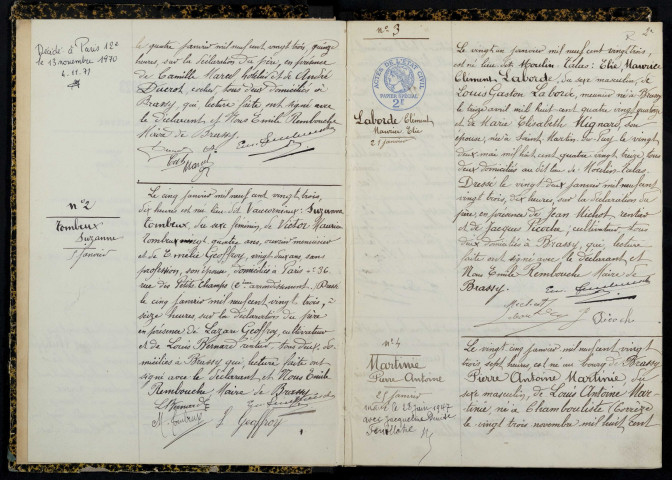 Décédé à Paris 12e
le 13 novembre 1970
4.11.71
le quatre janvier mil neuf cent vingt trois, quinze
heures, sur la déclaration du père, en présence
de Camille Marcel hôtelier et de André
Ducrot, cocher, tous deux domiciliés à
Brassy, qui, lecture faite ont signé avec
le déclarant et Nous Emile Rembouche
Maire de Brassy.
n° 2
Tombeux
Suzanne
5 janvier
Le cinq janvier mil neuf cent vingt trois,
dix heures est née lieu dit Vaucorneux: Suzanne
Tombeux, du sexe féminin, de Victor Maurice
Tombeux vingt quatre ans, ouvrier menuisier
et de Emélie Geoffroy, vingt deux ans, sans
profession, son épouse, domiciliés à Paris 36
rue des Petits Champs (2e arrondissement). Dressé
le cinq janvier mil neuf cent vingt trois,
seize heures sur la déclaration du père
en présence de Lazare Geoffroy, cultivateur
et de Louis Bernard cantier tous deux do-
miciliés à Brassy qui, lecture faite ont
signé avec le déclarant et Nous Emile
Rembouche, Maire de Brassy
L. Bernard
M. Tombeux L Geoffroy
n° 3
ACTES DE L'ÉTAT CIVIL
PAPIER SPÉCIAL
2F
Laborde Clément
Maurice Elie
21 janvier
Le vingt un janvier mil neuf cent vingt trois,
est né lieu dit Moulin Calas: Elie Maurice
Clément Laborde, du sexe masculin, de
Louis Gaston Laborde, meunier né à Brassy
le treize avril mil huit cent quatre vingt
et de Marie Elisabeth Mignard, son
épouse, née à Saint Martin du Puy le vingt
deux mai mil huit cent quatre vingt treize, tous
deux domiciliés au dit lieu de Moulin Calas.
Dressé le vingt deux janvier mil neuf cent
vingt trois, dix heures, sur la déclaration du
père, en présence de Jean Michot, rentier
et de Jacques Picoche, cultivateur, tous
deux domiciliés à Brassy, qui, lecture
faite ont signé avec le déclarant et
Nous Emile Rembouche Maire de
Brassy.
Michot
J Picoche
n° 4
Martinie
Pierre Antoine
25 janvier
marié le 28 juin 1947
avec Jacqueline
Le vingt cinq janvier mil neuf cent vingt
trois, sept heures, est né au bourg de Brassy
Pierre Antoine Martinie, du
sexe masculin, de Louis Antoine Mar-
tinie né à Chamboulistie (Corrèze)
le vingt trois novembre mil huit cent